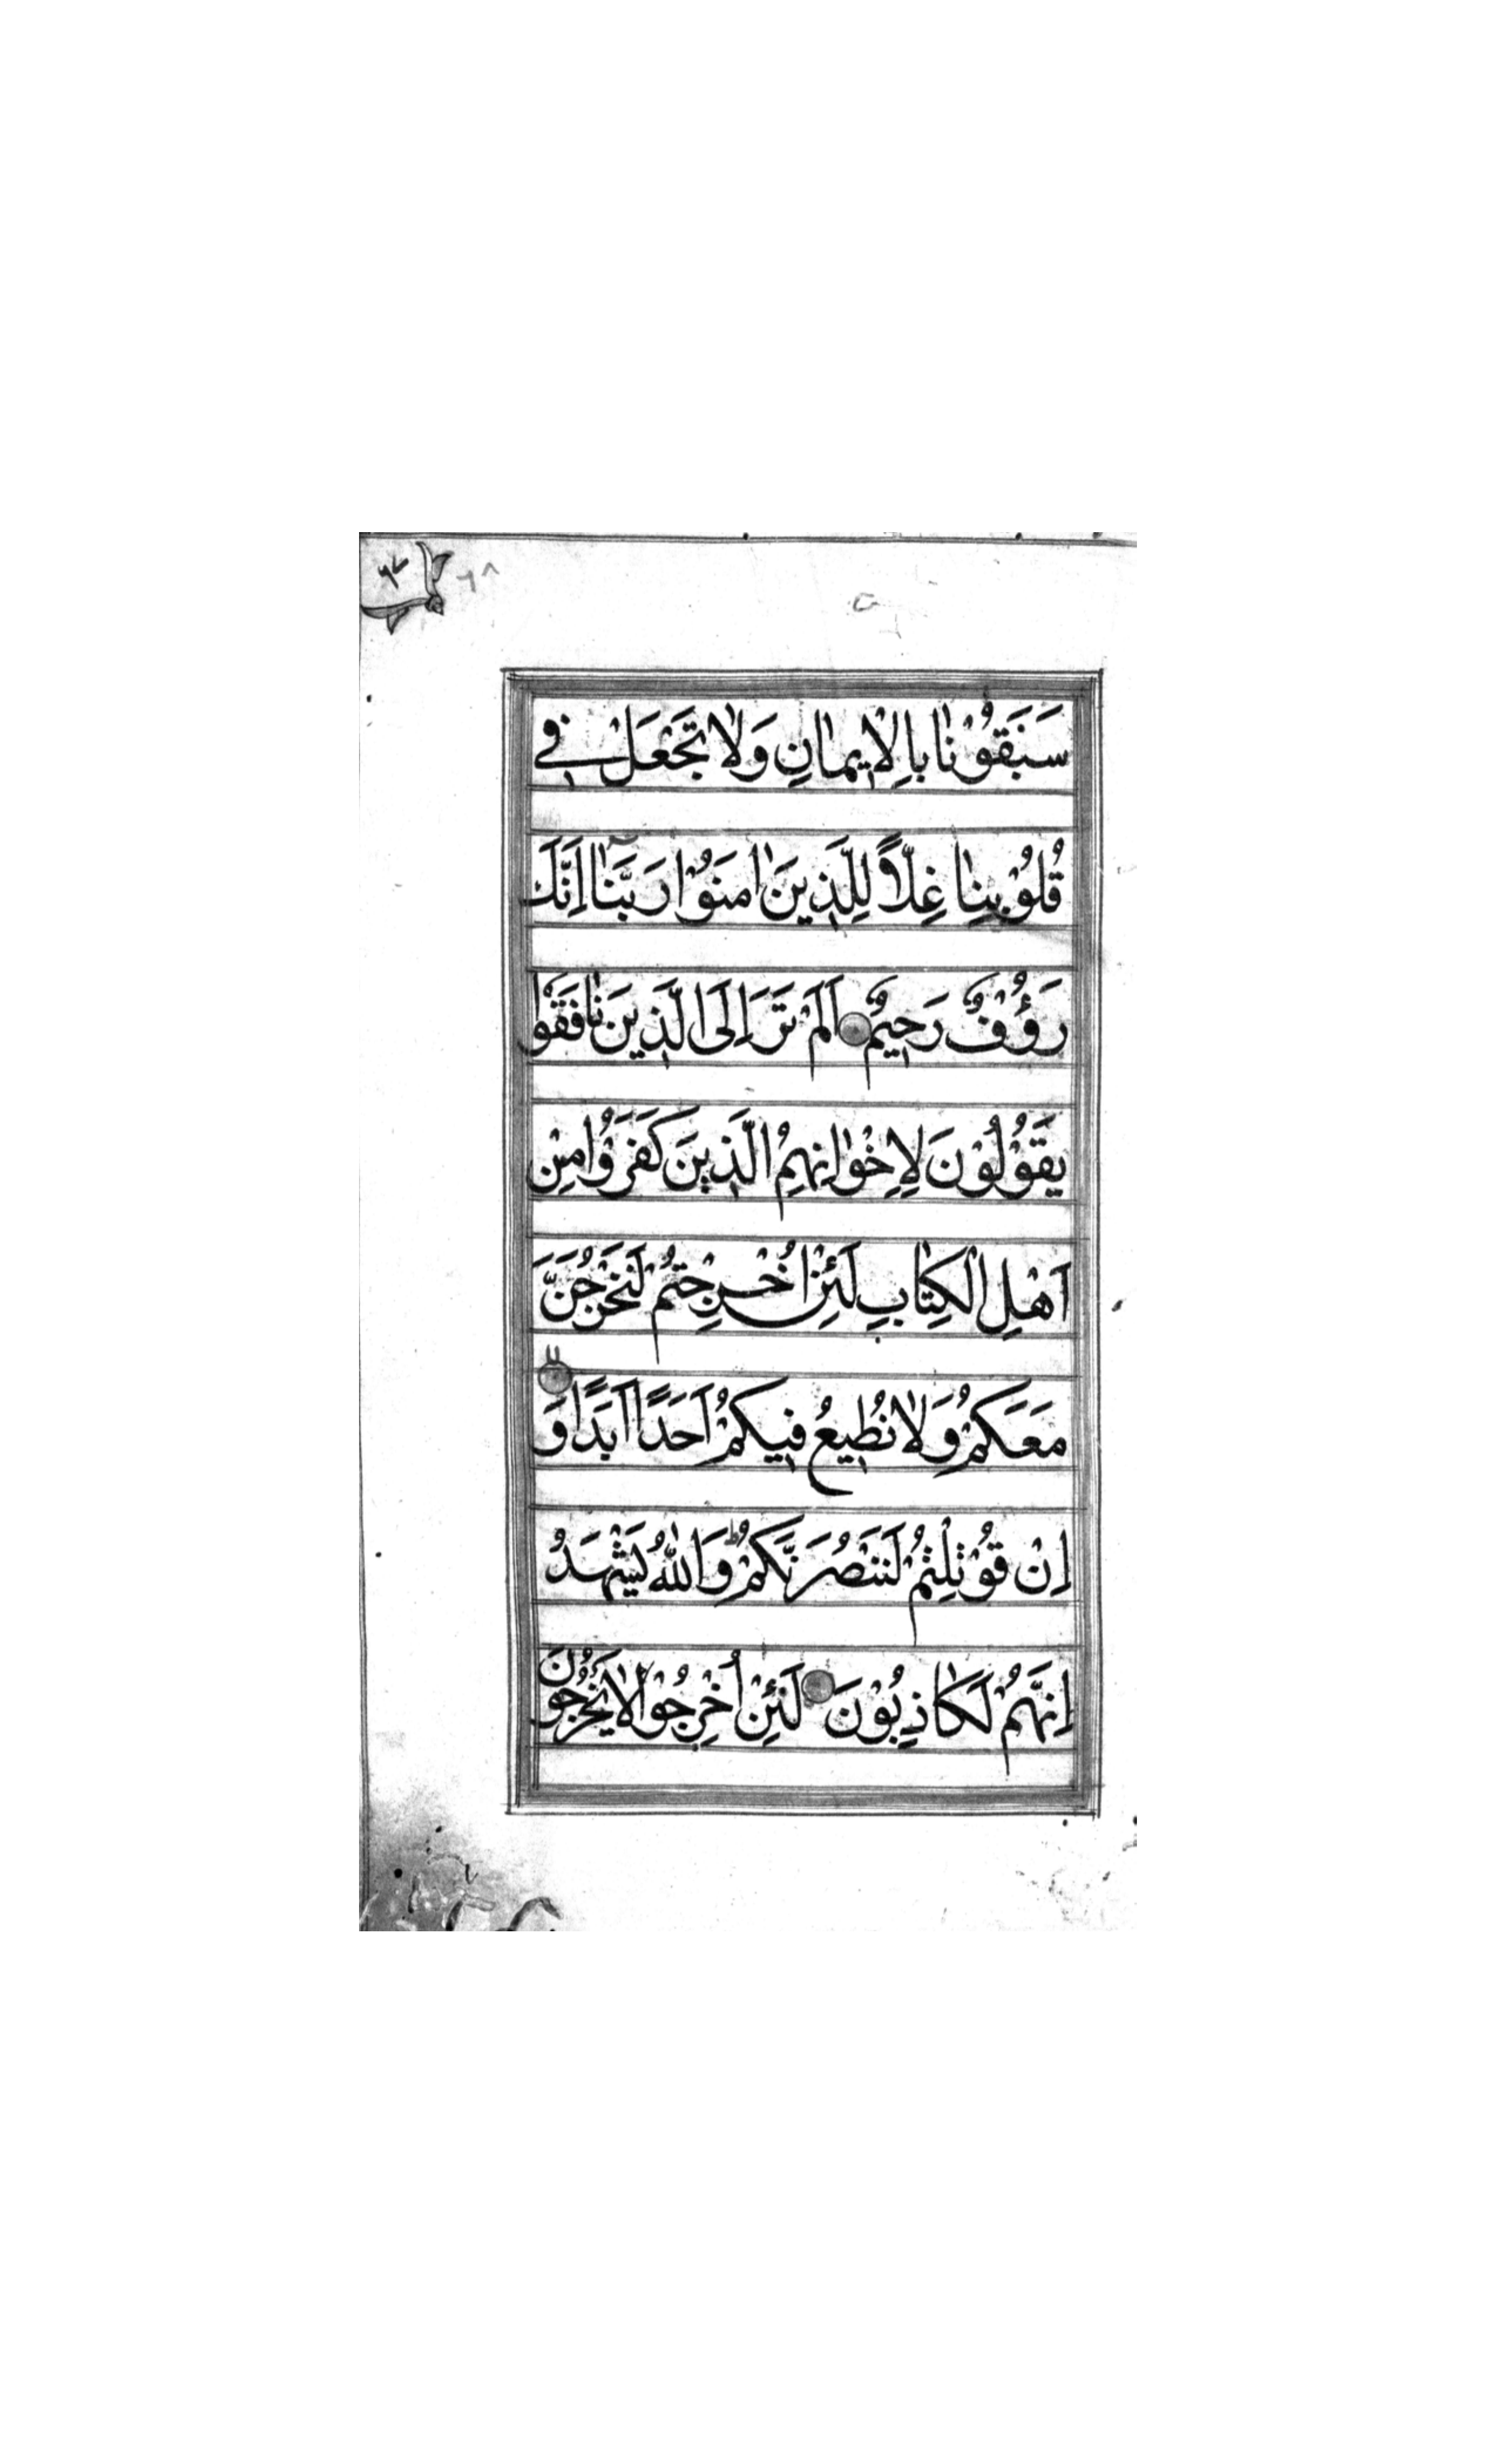 ٦٧ ٦٨
سَبَقُوْنَا بِالْاِيمَانِ وَلَا تَجْعَلْ فِي
قُلُوْبِنَا غِلًّا لِلَّذِينَ اٰمَنُوْا رَبَّنَا اِنَّكَ
رَؤُفٌ رَحِيْمٌ اَلَمْ تَرَ اِلَى الَّذِينَ نَافَقُوْا
يَقُوْلُوْنَ لِاِخْوَانِهِمُ الَّذِينَ كَفَرُوْا مِنْ
اَهْلِ الْكِتَابِ لَئِنْ اُخْرِجْتُمْ لَنَخْرُجَنَّ
مَعَكُمْ وَلَا نُطِيعُ فِيكُمْ اَحَدًا اَبَدًا وَ
اِنْ قُوْتِلْتُمْ لَنَنْصُرَنَّكُمْ وَاللّٰهُ يَشْهَدُ
اِنَّهُمْ لَكَاذِبُوْنَ لَئِنْ اُخْرِجُوْا لَا يَخْرُجُوْنَ